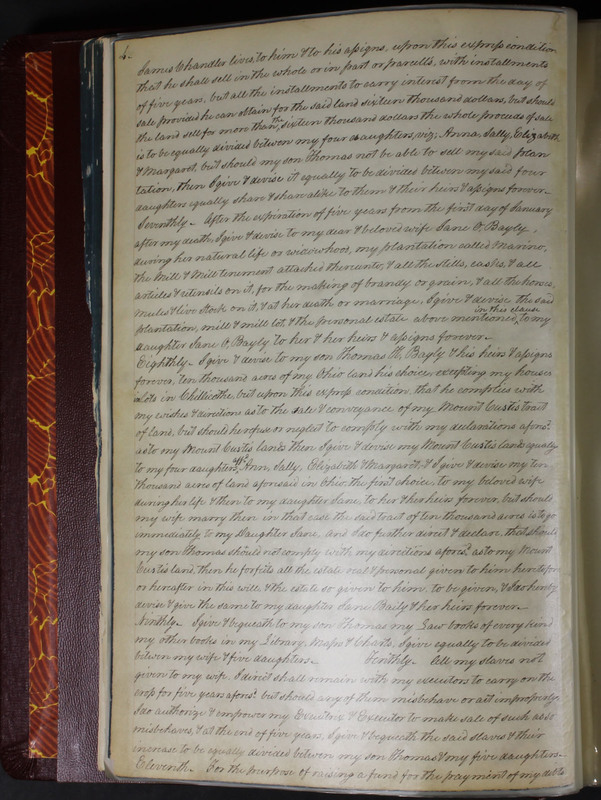 4.
James Chandler lives, to him & to his assigns, upon this express condition
that he shall sell in the whole or in part or parcells, with installments
of five years, but all the installments to carry interest from the day of
sale provided he can obtain for the said land sixteen thousand dollars, but should
the land sell for more than sixteen thousand dollars the whole proceeds of sale
is to be equally divided between my four daughters, viz; Anna, Sally, Elizabeth
& Margaret, but should my son Thomas not be able to sell my said plan
tation, then I give & devise it equally to be divided between my said four
daughters equally share & share alike to them & their heirs & assigns forever.
Seventhly. After the expiration of five years from the first day of January
after my death, I give & devise to my dear & beloved wife Jane O, Bayly,
during her natural life or widowhood, my plantation called Marino,
the Mill & Mill tenement attached thereunto, & all the stills, casks, & all
articles & utensils on it, for the making of brandy or grain, & all the horses,
mules & live stock on it, & at her death or marriage, I give & devise the said
plantation, mill & mill lot, & the personal estate above mentioned, in this clause to my
daughter Jane O, Bayly to her & her heirs & assigns forever.
Eighthly. I give & devise to my son Thomas H, Bayly & his heirs & assigns
forever, ten thousand acres of my Ohio land his choice, excepting my houses
& Lots in Chillicothe, but upon this express condition, that he complies with
my wishes & directions as to the sale & conveyance of my Mount Custis tract
of land, but should he refuse or neglect to comply with my declarations afores.d
as to my Mount Custis lands then I give & devise my Mount Custis lands equally
to my four daughters, affs.d Ann, Sally, Elizabeth & Margaret, & I give & devise my ten
thousand acres of land aforesaid in Ohio the first choice, to my beloved wife
during her life & then to my daughter Jane, to her & her heirs forever, but should
my wife marry then in that case the said tract of ten thousand acres is to go
immediately to my Daughter Jane. And I do further direct & declare, that should
my son Thomas should not comply with my directions afores.d as to my Mount
Custis land, then he forfeits all the estate real & personal given to him heretofore
or hereafter in this will, & the estate so given to him, to be given, & I do hereby
devise & give the same to my daughter Jane Baily & her heirs forever.
Ninthly. I give & bequeath to my son Thomas my Law books of every kind
my other books in my Library, Maps & Charts, I give equally to be divided
between my wife & five daughters. Tenthly. All my slaves not
given to my wife I direct shall remain with my executors to carry on the
crop for five years afores.d but should any of them misbehave or act improperly,
I do authorize & empower my Executrix & Executor to make sale of such as so
misbehaves, & at the end of five years, I give & bequeath the said slaves & their
increase to be equally divided between my son Thomas & my five daughters.
Eleventh. For the purpose of raising a fund for the payment of my debts